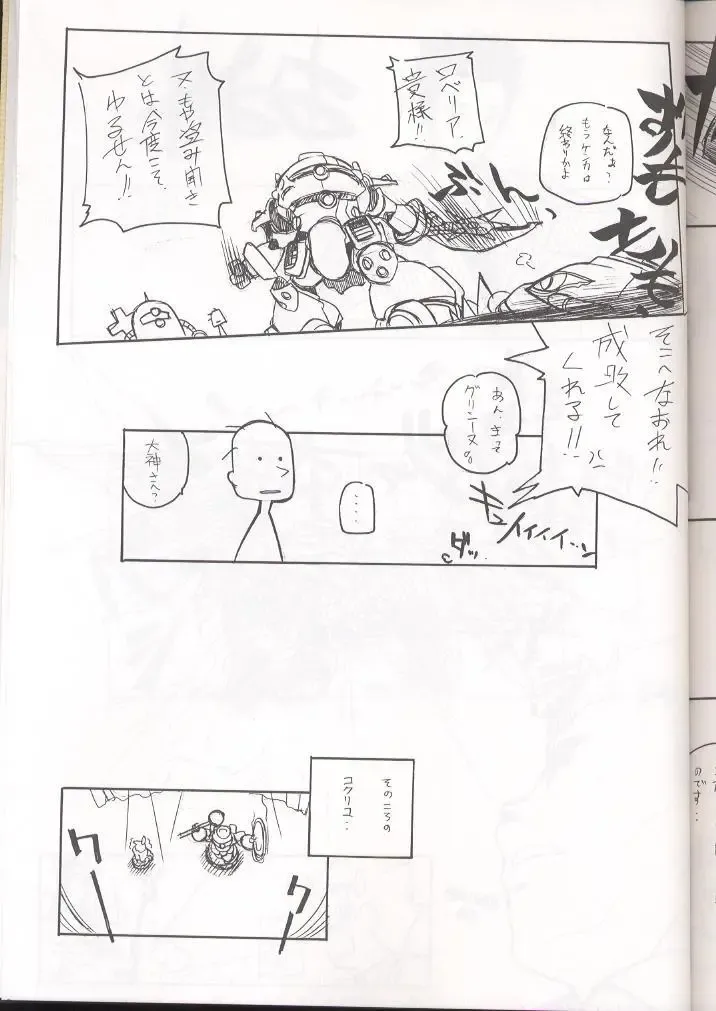 なんだぁ?
もうケンカは
終わりかよ
ロベリア
貴様!!
又も盗み聞き
とは今度こそ
ゆるせん!!
ぶん
そこへなおれ!!
成敗して
くれる!!
あん、まって
グリシーヌ。
キュイイイイ…ン
ダッ
....
大神さん?
そのころの
コクリコ..
クー
クー
のです..